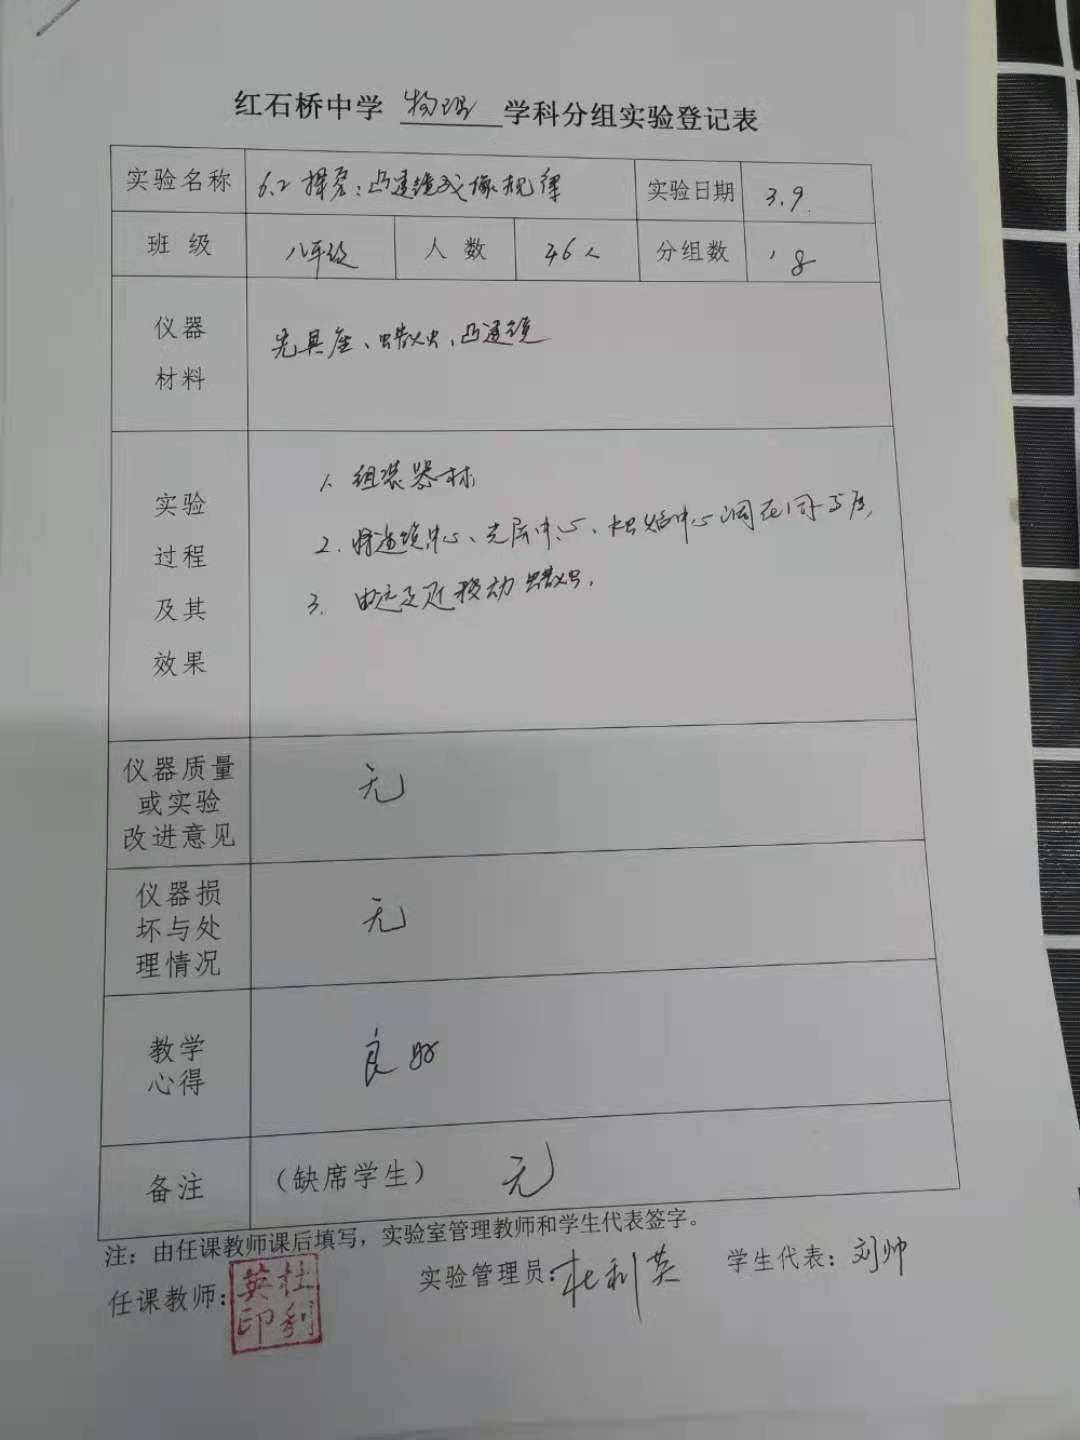 红石桥中学 物理 学科分组实验登记表
实验名称 6.2 探究：凸透镜成像规律 实验日期 3.9.
班 级 八年级 人 数 46人 分组数 8
仪器
材料
光具座、蜡烛、凸透镜
实验
过程
及其
效果
1、组装器材
2、将透镜中心、光屏中心、烛焰中心调在同一高度,
3、由远及近移动蜡烛.
仪器质量
或实验
改进意见
无
仪器损
坏与处
理情况
无
教学
心得
良好
备注 （缺席学生） 无
注：由任课教师课后填写，实验室管理教师和学生代表签字。
任课教师： 杜利英印 实验管理员：杜利英 学生代表：刘帅